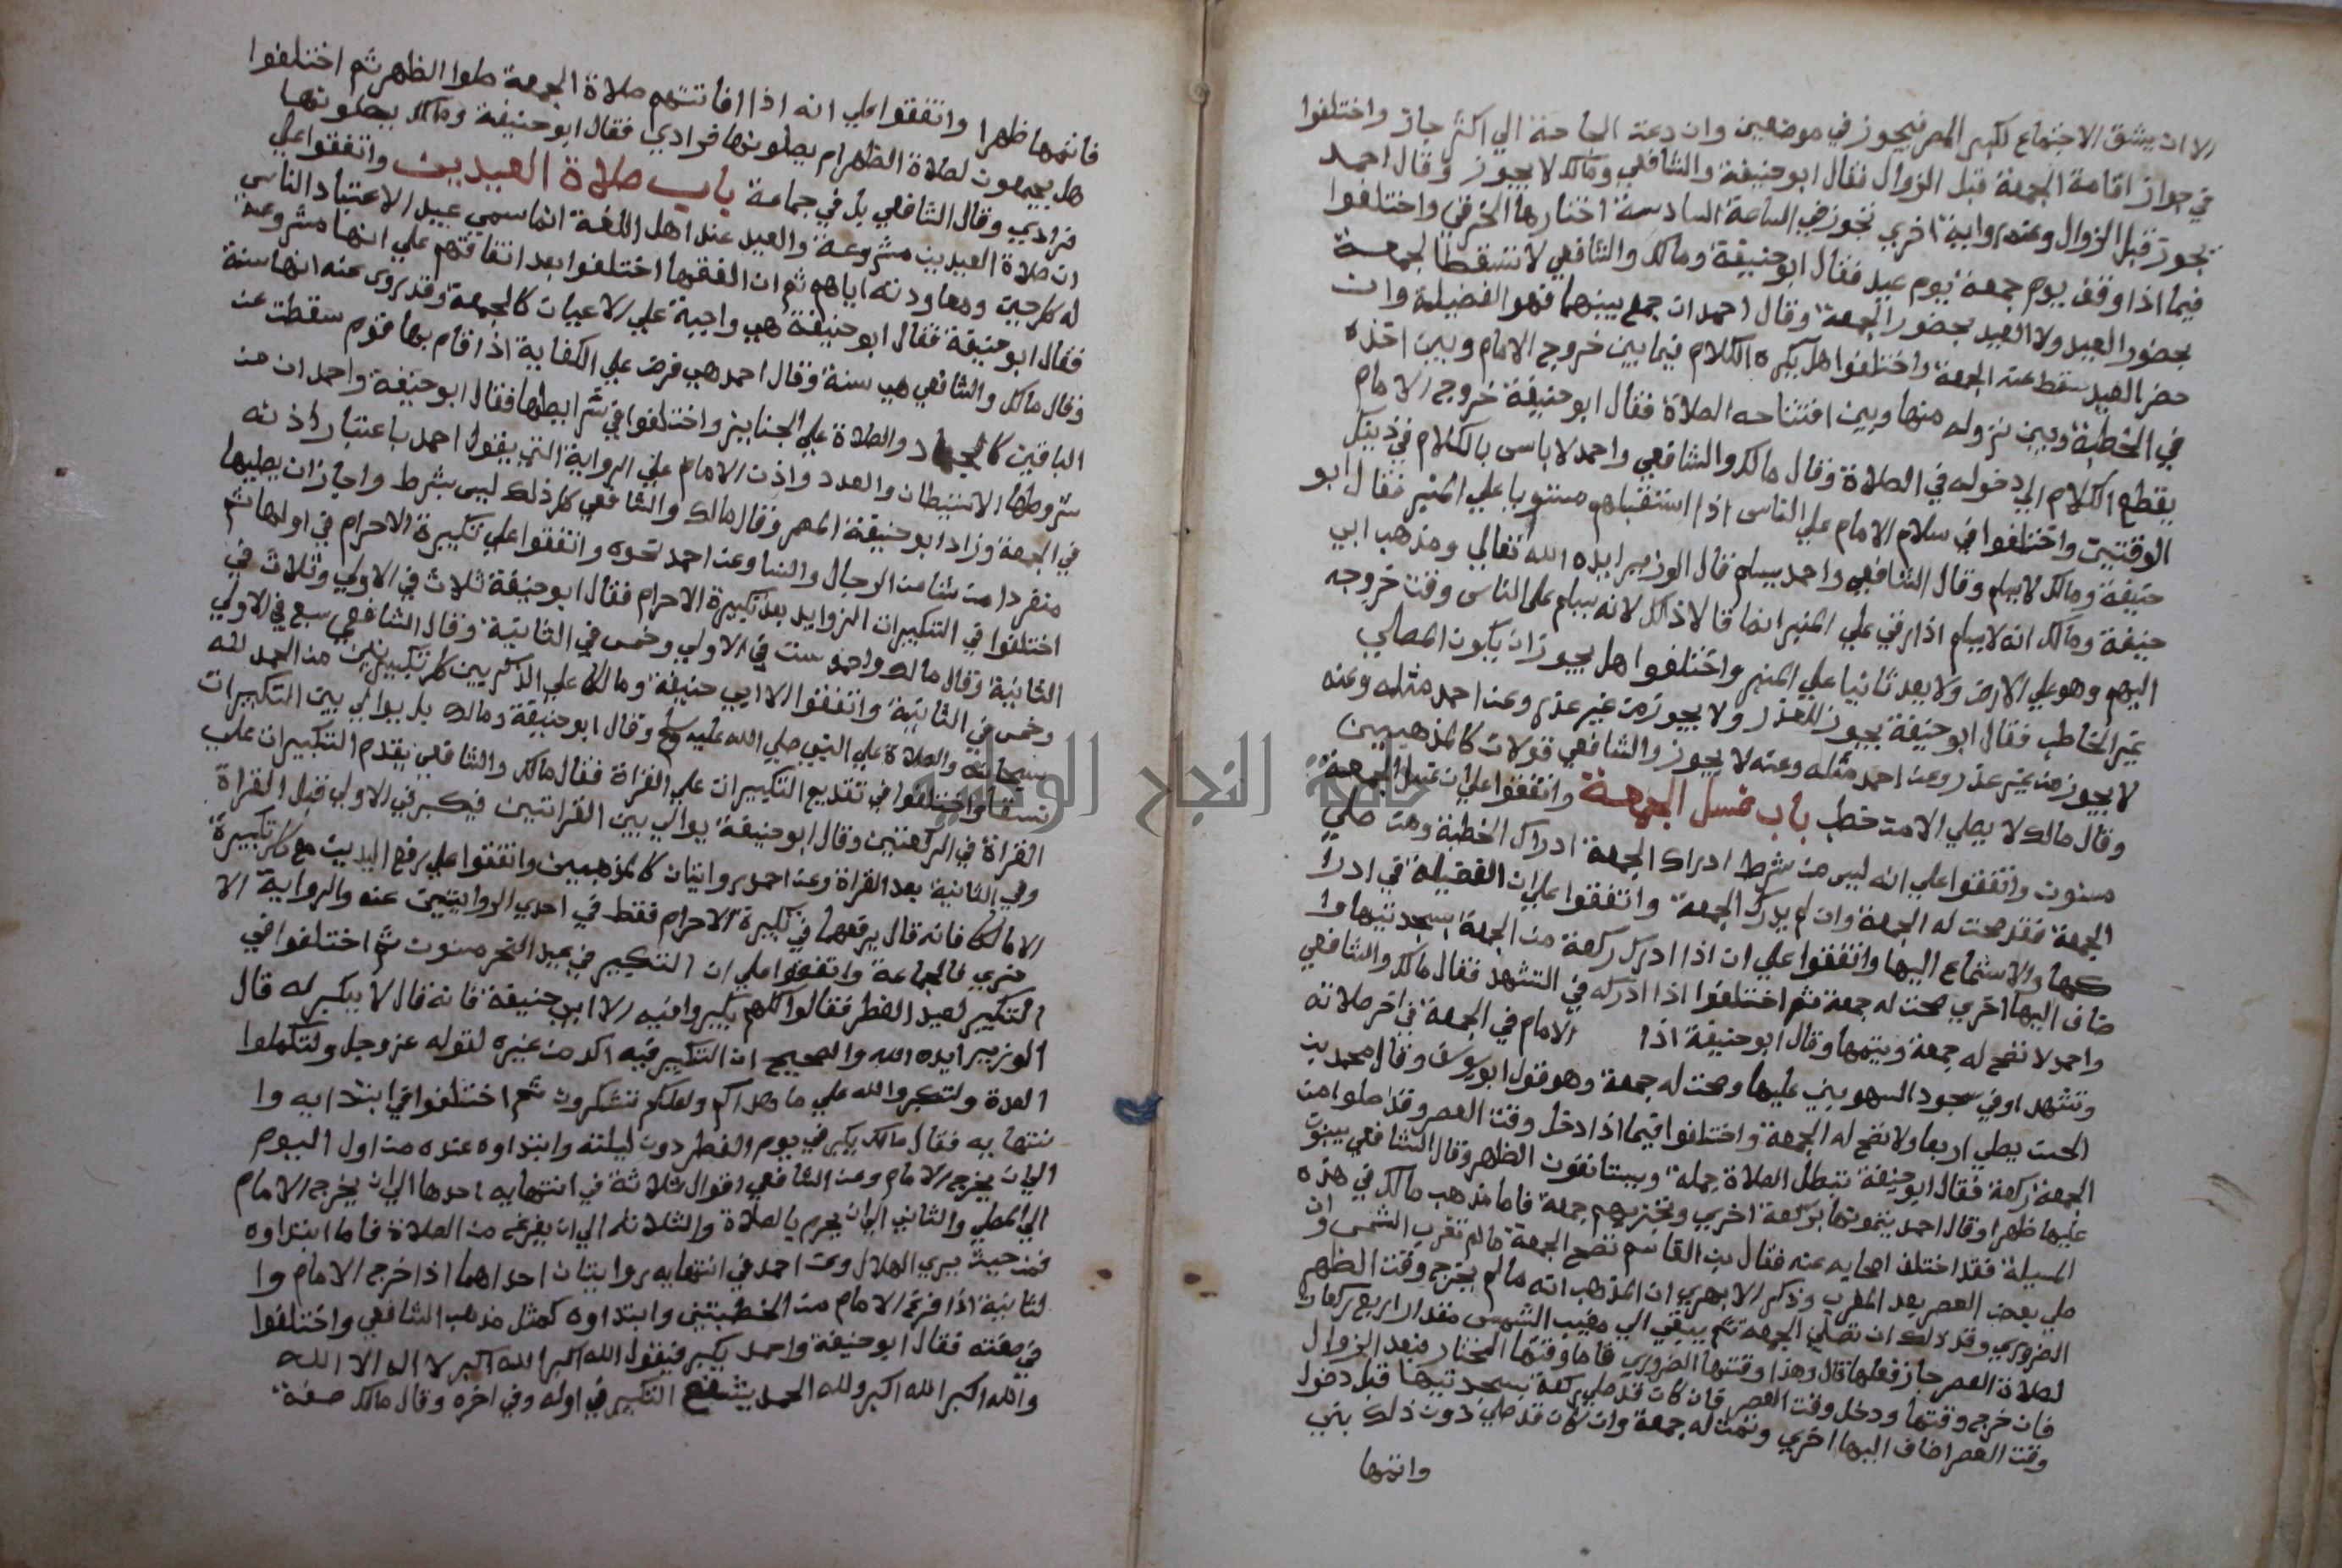 الا ان يشق الاجتماع لكبر المصر فيجوز في موضعين وان دعت الحاجة الي اكثر جاز واختلفوا
في جواز اقامة الجمعة قبل الزوال فقال ابو حنيفة والشافعي ومالك لا يجوز وقال احمد
يجوز قبل الزوال وعنه رواية اخري تجوز في الساعة السادسة اختارها الخرقي واختلفوا
فيما اذا وقف يوم جمعة يوم عيد فقال ابو حنيفة ومالك والشافعي لا تسقط الجمعة
بحضور العيد ولا العيد بحضور الجمعة وقال احمد ان جمع بينهما فهو الفضيلة وان
حضر العيد سقط عنه الجمعة واختلفوا هل يكره الكلام فيما بين خروج الامام وبين اخذه
في الخطبة وبين نزوله منها وبين افتتاحه الصلاة فقال ابو حنيفة خروج الامام
يقطع الكلام الي دخوله في الصلاة وقال مالك والشافعي واحمد لا باس بالكلام في ذينك
الوقتين واختلفوا في سلام الامام علي الناس اذا استقبلهم مستويا علي المنبر فقال ابو
حنيفة ومالك لا يسلم وقال الشافعي واحمد يسلم قال الوزير ايده الله تعالي ومذهب ابي
حنيفة ومالك انه لا يسلم اذا رقي علي المنبر انما قالا ذلك لانه يسلم علي الناس وقت خروجه
اليهم وهو علي الارض ولا يعد ثانيا علي المنبر واختلفوا هل يجوز ان يكون المصلي
غير الخاطب فقال ابو حنيفة يجوز للعذر ولا يجوز من غير عذر وعن احمد مثله وعنه
لا يجوز من غير عذر وعن احمد مثله وعنه لا يجوز والشافعي قولان كالمذهبين
وقال مالك لا يصلي الا من خطب باب غسل الجمعة واتفقوا علي ان غسل الجمعة
مسنون واتفقوا علي انه ليس من شرط ادراك الجمعة ادراك الخطبة ومن صلي
الجمعة فقد صحت له الجمعة وان لم يدرك الجمعة واتفقوا علي ان الفضيلة في ادرا
كها والاستماع اليها واتفقوا علي ان اذا ادرك ركعة من الجمعة بسجدتيها وا
ضاف اليها اخري صحت له جمعة ثم اختلفوا اذا ادركه في التشهد فقال مالك والشافعي
واحمد لا تصح له جمعة ويتمها وقال ابو حنيفة اذا الامام في الجمعة في اخر صلاته
وتشهد او في سجود السهو بني عليها وصحت له جمعة وهو قول ابو يوسف وقال محمد بن
الحسن يصلي اربعا ولا تصح له الجمعة واختلفوا فيما اذا دخل وقت العصر وقد صلوا من
الجمعة ركعة فقال ابو حنيفة تبطل الصلاة جملة ويستانفون الظهر وقال الشافعي يبنون
عليها ظهرا وقال احمد يتمونها بركعة اخري وتجزيهم جمعة فاما مذهب مالك في هذه
المسيلة فقد اختلف اصحابه عنه فقال بن القاسم تصح الجمعة ما لم تغرب الشمس وان
صلي بعض العصر بعد المغرب وذكر الابهري ان المذهب انه ما لم يخرج وقت الظهر
الضروري وقد ذلك ان تصلي الجمعة ثم يبقي الي مغيب الشمس مقدار اربع ركعات
لصلاة العصر جاز فعلها قال وهذا وقتها الضروري فاما وقتها المختار فبعد الزوال
فان خرج وقتها ودخل وقت العصر فان كان قد صلي ركعة بسجدتيها قبل دخول
وقت العصر اضاف اليها اخري وتمت له جمعة وان كان قد صلي دون ذلك بني
واتمها
فاتمها ظهرا واتفقوا علي انه اذا فاتتهم صلاة الجمعة صلوا الظهر ثم اختلفوا
هل يجمعون لصلاة الظهر ام يصلونها فرادي فقال ابو حنيفة ومالك يصلونها
فرادي وقال الشافعي بل في جماعة باب صلاة العيدين واتفقوا علي
ان صلاة العيدين مشروعة والعيد عند اهل اللغة انما سمي عيد الاعتياد الناس
له كل حين ومعاودته اياهم ثم ان الفقها اختلفوا بعد اتفاقهم علي انها مشروعة
فقال ابو حنيفة فقال ابو حنيفة هي واجبة علي الاعيان كالجمعة وقد روي عنه انها سنة
وقال مالك والشافعي هي سنة وقال احمد هي فرض علي الكفاية اذا قام بها قوم سقطت عن
الباقين كالجهاد والصلاة علي الجنايز واختلفوا في شرايطها فقال ابو حنيفة واحمد ان من
شروطها الاستيطان والعدد واذن الامام علي الرواية التي يقول احمد باعتبار اذنه
في الجمعة وزاد ابو حنيفة المصر وقال مالك والشافعي كل ذلك ليس بشرط واجاز ان يصليها
منفردا من شا من الرجال والنسا وعن احمد نحوه واتفقوا علي تكبيرة الاحرام في اولها ثم
اختلفوا في التكبيرات الزوايد بعد تكبيرة الاحرام فقال ابو حنيفة ثلاث في الاولي وثلاث في
الثانية وقال مالك واحمد ست في الاولي وخمس في الثانية وقال الشافعي سبع في الاولي
وخمس في الثانية واتفقوا الا ابي حنيفة ومالكا علي الذكر بين كل تكبيرتين من الحمد لله
سبحانه والصلاة علي النبي صلي الله عليه وسلم وقال ابو حنيفة ومالك بل يوالي بين التكبيرات
نسقا واختلفوا في تقديم التكبيرات علي القراة فقال مالك والشافعي يقدم التكبيرات علي
القراة في الركعتين وقال ابو حنيفة يوالي بين القراتين فيكبر في الاولي قبل القراة
وفي الثانية بعد القراة وعن احمد روايتان كالمذهبين واتفقوا علي رفع اليدين مع كل تكبيرة
الا مالكا فانه قال يرفعهما في تكبيرة الاحرام فقط في احدي الروايتين عنه والرواية الا
خري كالجماعة واتفقوا علي ان التكبير في عيد النحر مسنون ثم اختلفوا في
التكبير لعيد الفطر فقالوا كلهم يكبر وا فيه الا ابي حنيفة فانه قال لا يكبر له قال
الوزير ايده الله والصحيح ان التكبير فيه اكد من غيره لقوله عز وجل ولتكملوا
العدة ولتكبروا الله علي ما هداكم ولعلكم تشكرون ثم اختلفوا في ابتدايه وا
نتهايه فقال مالك يكبر في يوم الفطر دون ليلته وابتداوه عنده من اول اليوم
الي ان يخرج الامام وعن الشافعي اقوال ثلاثة في انتهايه احدها الي ان يخرج الامام
الي المصلي والثاني الي ان يحرم بالصلاة والثلاثة الي ان يفرغ من الصلاة فاما ابتداوه
فمن حيث يري الهلال وعن احمد في انتهايه روايتان احداهما اذا خرج الامام وا
لثانية اذا فرغ الامام من الخطبتين وابتداوه كمثل مذهب الشافعي واختلفوا
في صفته فقال ابو حنيفة واحمد يكبر فيقول الله اكبر الله اكبر لا اله الا الله
والله اكبر الله اكبر ولله الحمد يشفع التكبير في اوله وفي اخره وقال مالك صفة
جامعة النجاح الوطنية